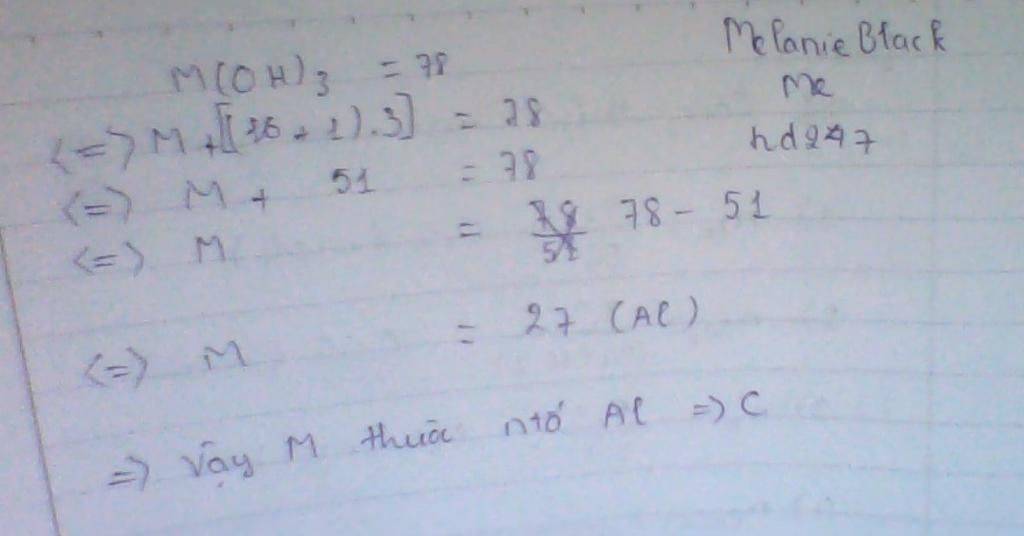 M(OH)3 = 78
<=> M + [(16 + 1).3] = 78
<=> M + 51 = 78
<=> M = 78/51 78 - 51
<=> M = 27 (Al)
=> Vậy M thuộc ntố Al => C
Melanie Black
Me
hd247